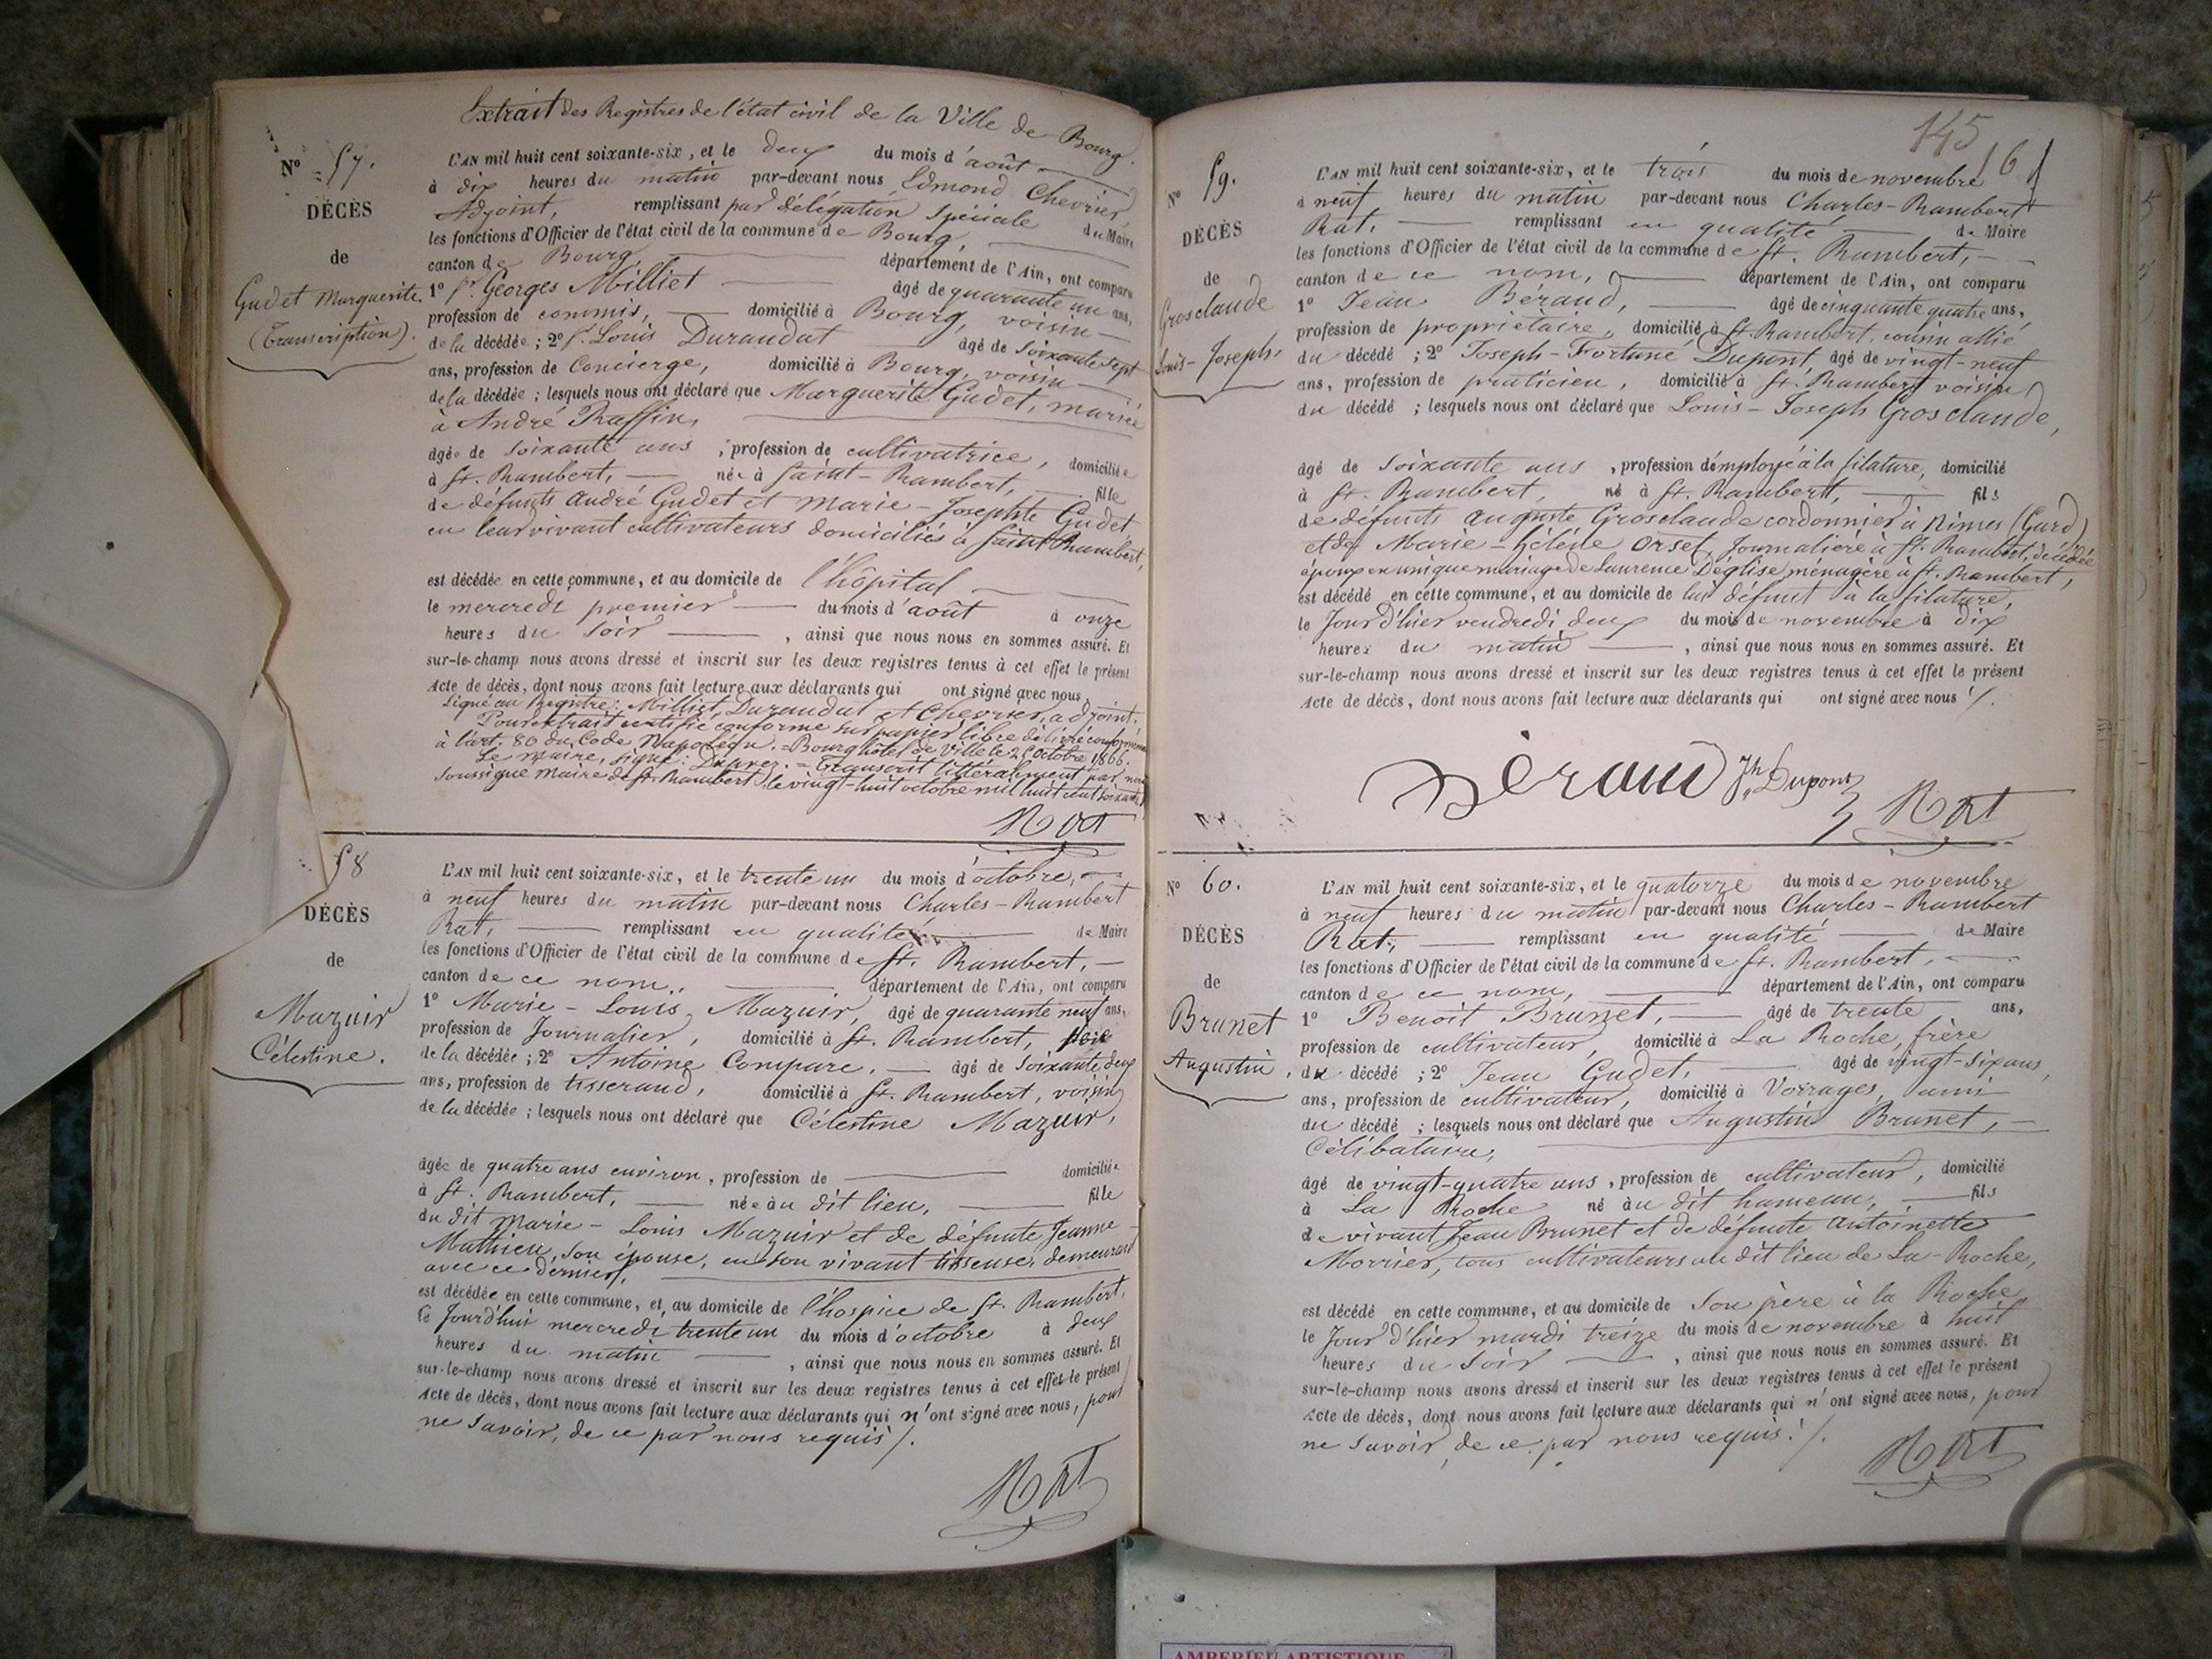 Extrait des Registres de l'état civil de la Ville de Bourg.
N° 57.
DÉCÈS
de
Gudet Marguerite
(Transcription).
L'AN mil huit cent soixante-six, et le deux du mois d'août
à dix heures du matin par-devant nous Edmond Chevrier,
Adjoint, remplissant par délégation spéciale du Maire
les fonctions d'Officier de l'état civil de la commune de Bourg,
canton de Bourg département de l'Ain, ont comparu
1° Sr. Georges Milliet âgé de quarante un ans,
profession de commis, domicilié à Bourg, voisin
de la décédée ; 2° Sr. Louis Durandat âgé de soixante sept
ans, profession de Concierge, domicilié à Bourg, voisin
de la décédée ; lesquels nous ont déclaré que Marguerite Gudet, mariée
à André Raffin,
âgée de soixante ans, profession de cultivatrice, domiciliée
à St. Rambert, née à Saint-Rambert, fille
de défunts André Gudet et Marie-Josephte Gudet,
en leur vivant cultivateurs domiciliés à Saint Rambert,
est décédée en cette commune, et au domicile de l'hôpital
le mercredi premier du mois d'août à onze
heures du soir, ainsi que nous nous en sommes assuré. Et
sur-le-champ nous avons dressé et inscrit sur les deux registres tenus à cet effet le présent
Acte de décès, dont nous avons fait lecture aux déclarants qui ont signé avec nous,
Signé au Registre : Milliet, Durandat et Chevrier, adjoint.
Pour extrait certifié conforme sur papier libre délivré conformément
à l'art. 80 du Code Napoléon. = Bourg hôtel de Ville le 25 Octobre 1866.
Le Maire, signé : = Transcrit littéralement par nous
soussigné Maire de St. Rambert, le vingt-huit octobre mil huit cent soixante
Rat
58
DÉCÈS
de
Mazuir
Célestine.
L'AN mil huit cent soixante-six, et le trente un du mois d'octobre,
à neuf heures du matin par-devant nous Charles-Rambert
Rat, remplissant en qualité de Maire
les fonctions d'Officier de l'état civil de la commune de St. Rambert,
canton de ce nom, département de l'Ain, ont comparu
1° Marie-Louis Mazuir, âgé de quarante neuf ans,
profession de Journalier, domicilié à St. Rambert, père
de la décédée ; 2° Antoine Compare, âgé de soixante deux
ans, profession de tisserand, domicilié à St. Rambert, voisin
de la décédée ; lesquels nous ont déclaré que Célestine Mazuir,
âgée de quatre ans environ, profession de domiciliée
à St. Rambert, née au dit lieu, fille
du dit Marie-Louis Mazuir et de défunte Jeanne
Mathieu, son épouse, en son vivant tisseuse, demeurant
avec ce dernier,
est décédée en cette commune, et au domicile de l'hospice de St. Rambert,
le Jourd'hui mercredi trente un du mois d'octobre à deux
heures du matin, ainsi que nous nous en sommes assuré. Et
sur-le-champ nous avons dressé et inscrit sur les deux registres tenus à cet effet le présent
Acte de décès, dont nous avons fait lecture aux déclarants qui n'ont signé avec nous, pour
ne savoir, de ce par nous requis /.
Rat
145
16
N° 59.
DÉCÈS
de
Grosclaude
Louis-Joseph.
L'AN mil huit cent soixante-six, et le trois du mois de novembre
à neuf heures du matin par-devant nous Charles-Rambert
Rat, remplissant en qualité de Maire
les fonctions d'Officier de l'état civil de la commune de St. Rambert,
canton de ce nom, département de l'Ain, ont comparu
1° Jean Béraud, âgé de cinquante quatre ans,
profession de propriétaire, domicilié à St. Rambert, cousin allié
du décédé ; 2° Joseph-Fortuné Dupont, âgé de vingt-neuf
ans, profession de praticien, domicilié à St. Rambert voisin
du décédé ; lesquels nous ont déclaré que Louis-Joseph Grosclaude,
âgé de soixante ans, profession d'employé à la filature, domicilié
à St. Rambert, né à St. Rambert, fils
de défunts Auguste Grosclaude cordonnier à Nimes (Gard)
et de Marie-Hélène Orset, Journalière à St. Rambert, décédée
époux en unique mariage de Laurence Déglise, ménagère à St. Rambert,
est décédé en cette commune, et au domicile de lui défunt à la filature,
le Jour d'hier vendredi deux du mois de novembre à dix
heures du matin, ainsi que nous nous en sommes assuré. Et
sur-le-champ nous avons dressé et inscrit sur les deux registres tenus à cet effet le présent
Acte de décès, dont nous avons fait lecture aux déclarants qui ont signé avec nous /.
Béraud Jh Dupont Rat
N° 60.
DÉCÈS
de
Brunet
Augustin.
L'AN mil huit cent soixante-six, et le quatorze du mois de novembre
à neuf heures du matin par-devant nous Charles-Rambert
Rat, remplissant en qualité de Maire
les fonctions d'Officier de l'état civil de la commune de St. Rambert,
canton de ce nom, département de l'Ain, ont comparu
1° Benoit Brunet, âgé de trente ans,
profession de cultivateur, domicilié à La Roche, frère
du décédé ; 2° Jean Gudet, âgé de vingt-six ans,
ans, profession de cultivateur, domicilié à Vorages, ami
du décédé ; lesquels nous ont déclaré que Augustin Brunet,
Célibataire,
âgé de vingt-quatre ans, profession de cultivateur, domicilié
à La Roche né au dit hameau, fils
de vivant Jean Brunet et de défunte Antoinette
Morrier, tous cultivateurs au dit lieu de La-Roche,
est décédé en cette commune, et au domicile de son père à la Roche
le Jour d'hier mardi treize du mois de novembre à huit
heures du soir, ainsi que nous nous en sommes assuré. Et
sur-le-champ nous avons dressé et inscrit sur les deux registres tenus à cet effet le présent
Acte de décès, dont nous avons fait lecture aux déclarants qui n'ont signé avec nous, pour
ne savoir, de ce par nous requis. /.
Rat
AMBERIEU ARTISTIQUE